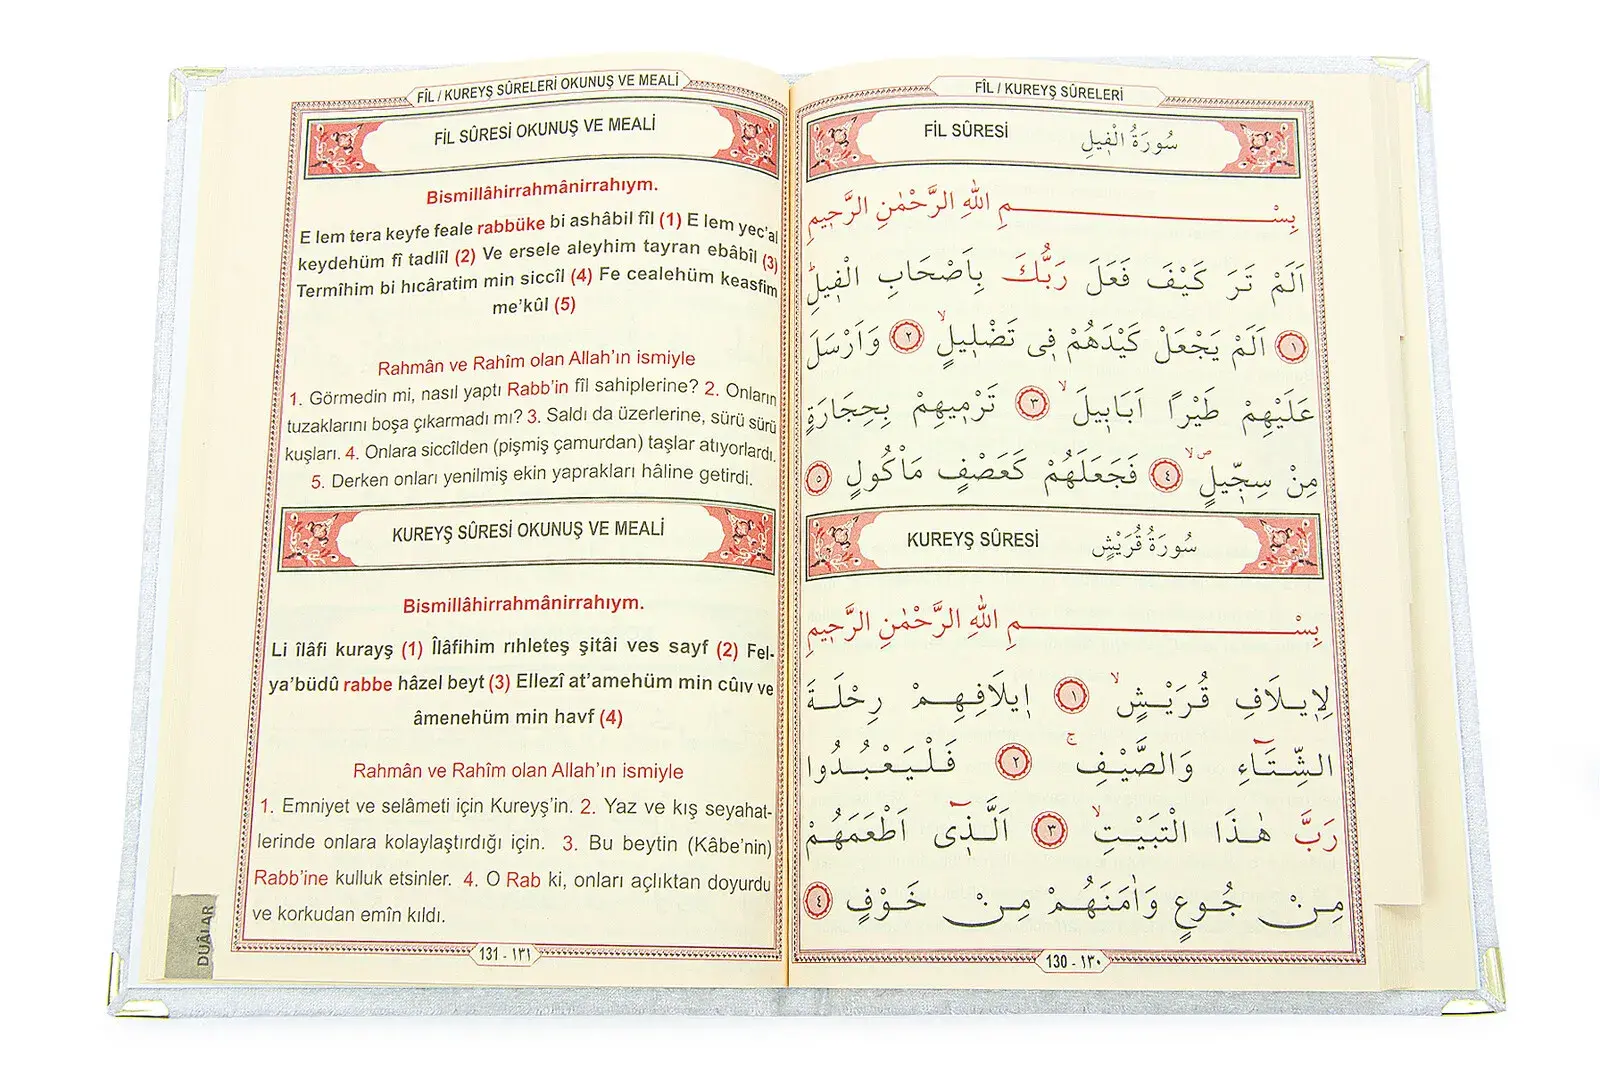 FÎL / KUREYŞ SÛRELERİ
FİL SÛRESİ سُورَةُ الْفٖيلِ
بِسْــــمِ اللّٰهِ الرَّحْمٰنِ الرَّحٖيمِ
اَلَمْ تَرَ كَيْفَ فَعَلَ رَبُّكَ بِاَصْحَابِ الْفٖيلِ
١ اَلَمْ يَجْعَلْ كَيْدَهُمْ فٖى تَضْلٖيلٍ ٢ وَاَرْسَلَ
عَلَيْهِمْ طَيْرًا اَبَابٖيلَ ٣ تَرْمٖيهِمْ بِحِجَارَةٍ
مِنْ سِجّٖيلٍ ٤ فَجَعَلَهُمْ كَعَصْفٍ مَاْكُولٍ ٥
KUREYŞ SÛRESİ سُورَةُ قُرَيْشٍ
بِسْــــمِ اللّٰهِ الرَّحْمٰنِ الرَّحٖيمِ
لِاٖيلَافِ قُرَيْشٍ ١ اٖيلَافِهِمْ رِحْلَةَ
الشِّتَٓاءِ وَالصَّيْفِ ٢ فَلْيَعْبُدُوا
رَبَّ هٰذَا الْبَيْتِ ٣ اَلَّذٖٓى اَطْعَمَهُمْ
مِنْ جُوعٍ وَاٰمَنَهُمْ مِنْ خَوْفٍ ٤
130 - ١٣٠
FÎL / KUREYŞ SÛRELERİ OKUNUŞ VE MEALİ
FİL SÛRESİ OKUNUŞ VE MEALİ
Bismillâhirrahmânirrahıym.
E lem tera keyfe feale rabbüke bi ashâbil fîl (1) E lem yec’al
keydehüm fî tadlîl (2) Ve ersele aleyhim tayran ebâbîl (3)
Termîhim bi hıcâratim min siccîl (4) Fe cealehüm keasfim
me’kûl (5)
Rahmân ve Rahîm olan Allah’ın ismiyle
1. Görmedin mi, nasıl yaptı Rabb’in fîl sahiplerine? 2. Onların
tuzaklarını boşa çıkarmadı mı? 3. Saldı da üzerlerine, sürü sürü
kuşları. 4. Onlara siccîlden (pişmiş çamurdan) taşlar atıyorlardı.
5. Derken onları yenilmiş ekin yaprakları hâline getirdi.
KUREYŞ SÛRESİ OKUNUŞ VE MEALİ
Bismillâhirrahmânirrahıym.
Li îlâfi kurayş (1) Îlâfihim rıhleteş şitâi ves sayf (2) Fel-
ya’büdû rabbe hâzel beyt (3) Ellezî at’amehüm min cûıv ve
âmenehüm min havf (4)
Rahmân ve Rahîm olan Allah’ın ismiyle
1. Emniyet ve selâmeti için Kureyş’in. 2. Yaz ve kış seyahat-
lerinde onlara kolaylaştırdığı için. 3. Bu beytin (Kâbe’nin)
Rabb’ine kulluk etsinler. 4. O Rab ki, onları açlıktan doyurdu
ve korkudan emîn kıldı.
131 - ١٣١
DUÂLAR